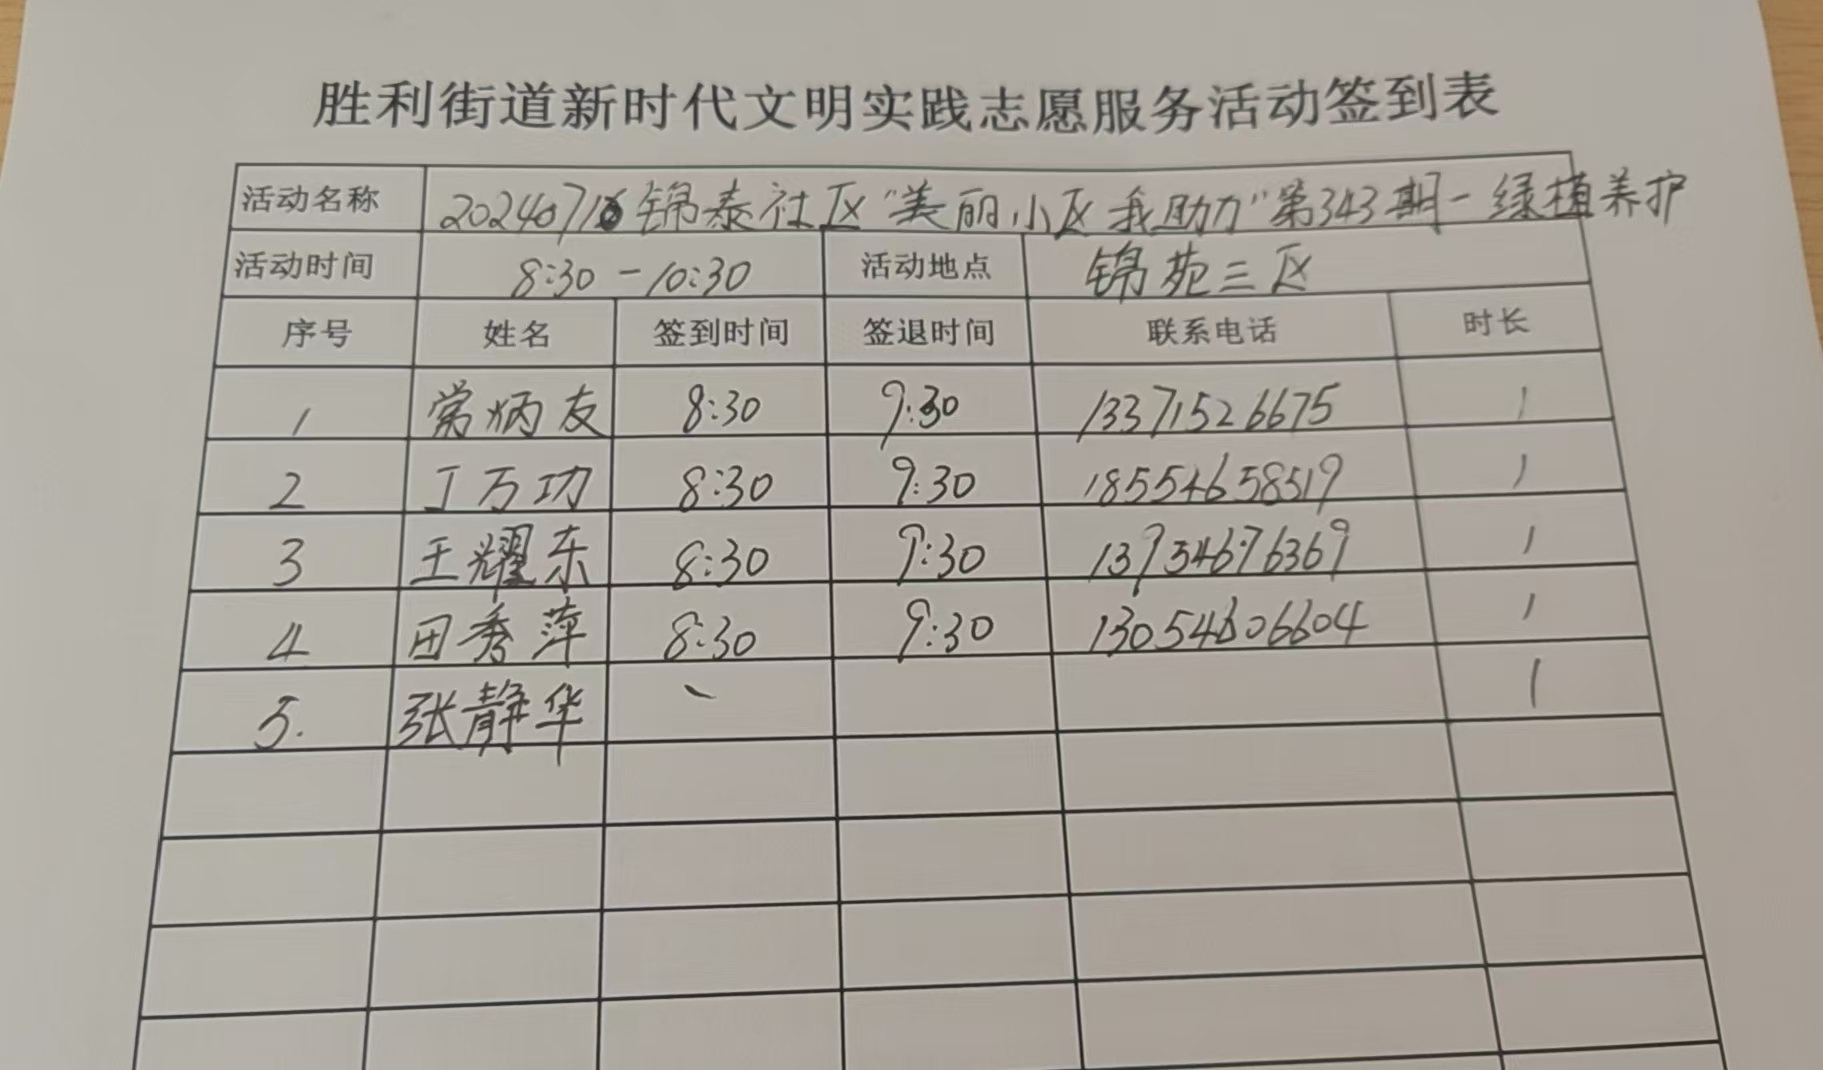 胜利街道新时代文明实践志愿服务活动签到表
活动名称 20240716锦泰社区"美丽小区我助力"第343期-绿植养护
活动时间 8:30-10:30 活动地点 锦苑三区
序号 姓名 签到时间 签退时间 联系电话 时长
1 常炳友 8:30 9:30 13371526675 1
2 丁万功 8:30 9:30 18554658519 1
3 王耀东 8:30 9:30 13954676369 1
4 田秀萍 8:30 9:30 13054606604 1
5. 张静华 1